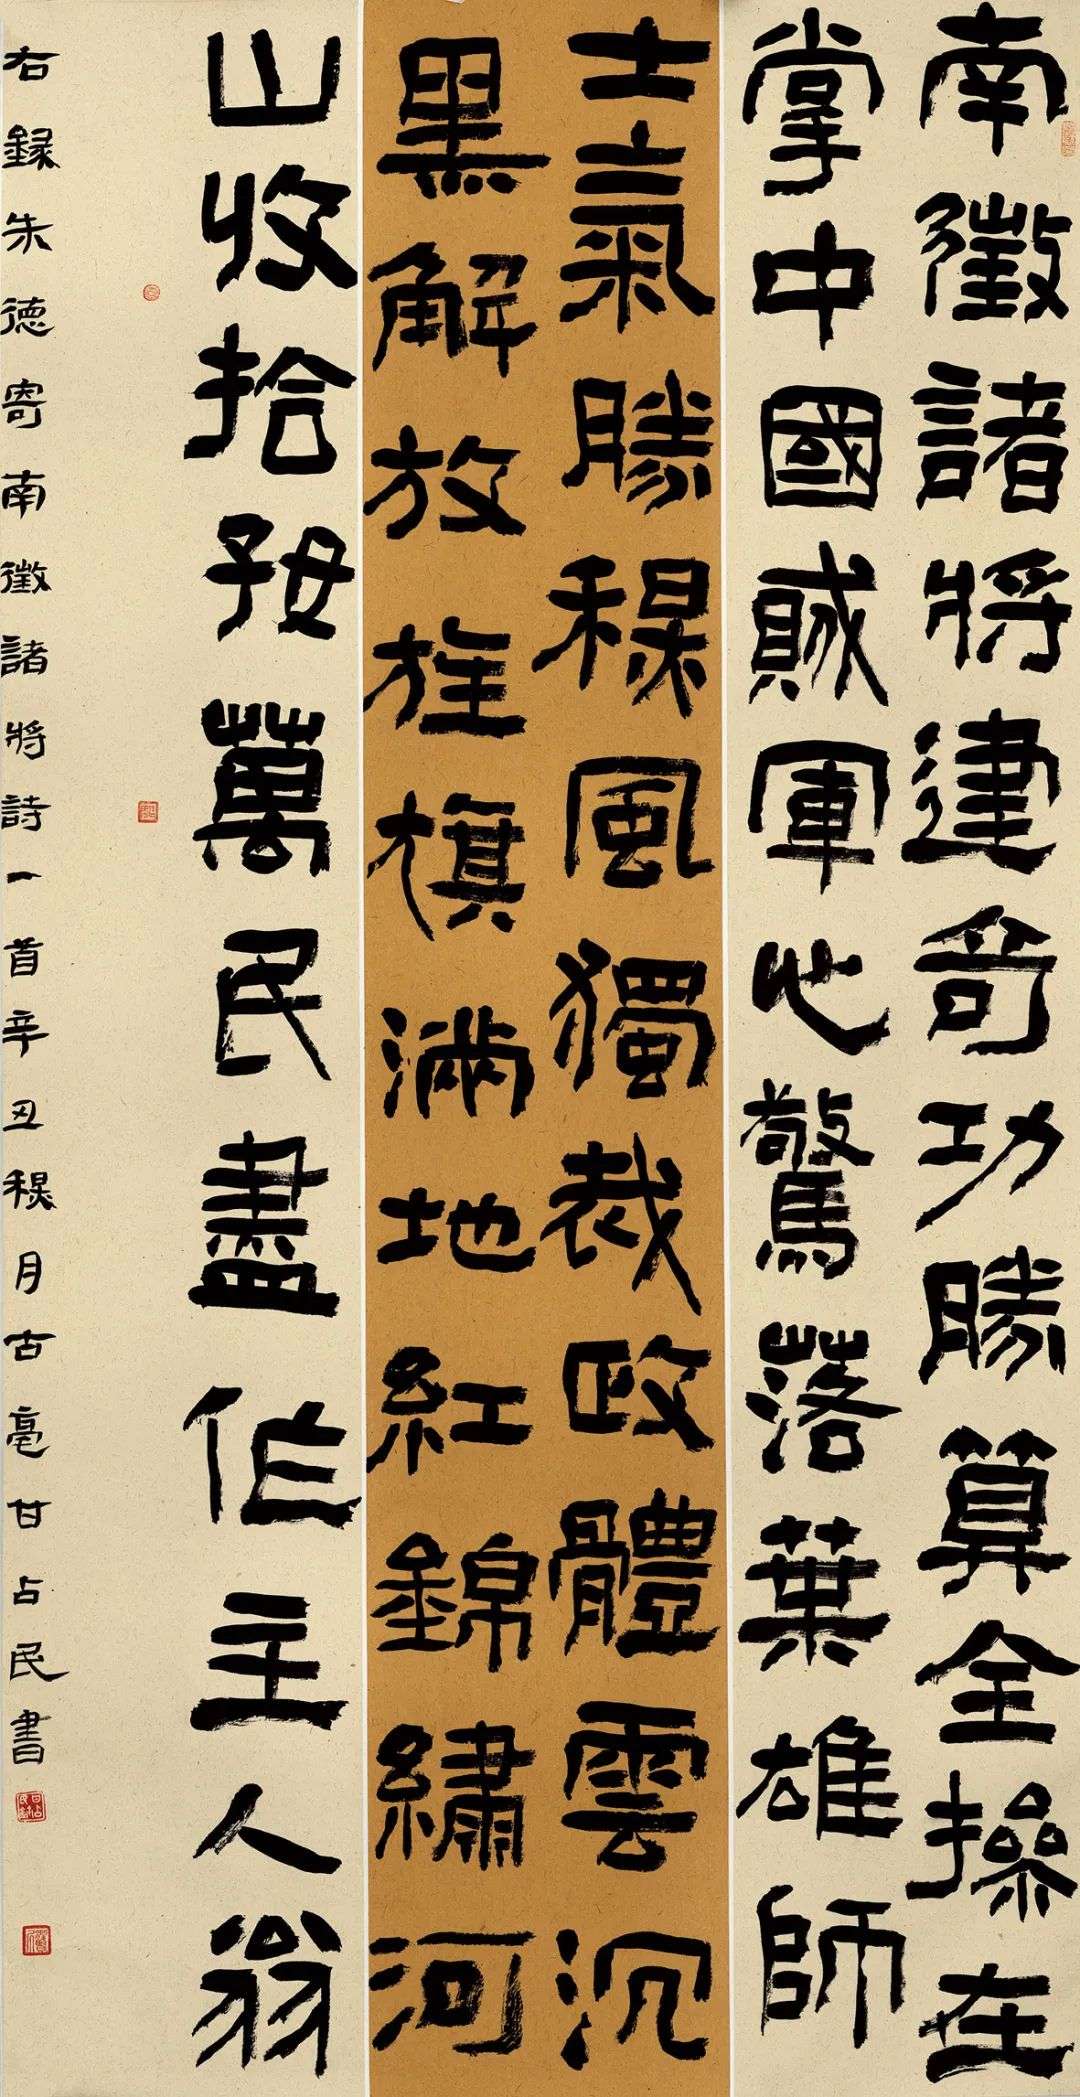 南徵諸將建奇功勝算全操在
掌中國賊軍心驚落葉雄師
士氣勝穓風獨裁政體雲沉
黑解放旌旗滿地紅錦繡河
山收拾好萬民盡作主人翁
右錄朱德寄南徵諸將詩一首辛丑穓月古亳甘占民書